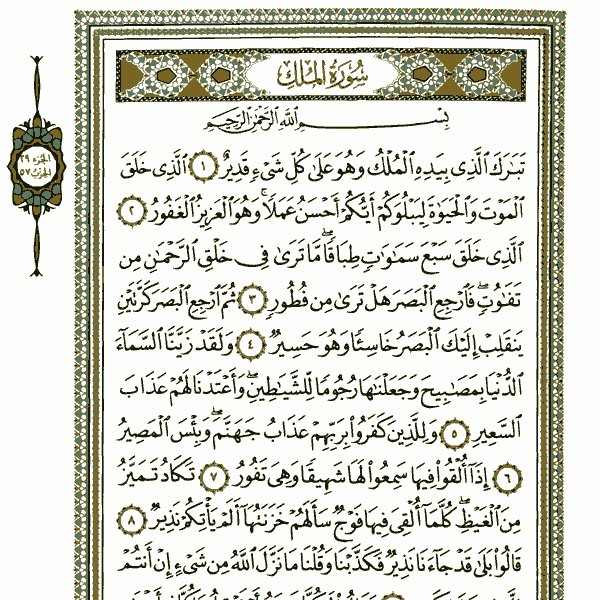 سُورَةُ المُلْكِ
بِسْمِ ٱللَّهِ ٱلرَّحْمَٰنِ ٱلرَّحِيمِ
الجزء ٢٩
الحزب ٥٧
تَبَٰرَكَ ٱلَّذِى بِيَدِهِ ٱلْمُلْكُ وَهُوَ عَلَىٰ كُلِّ شَىْءٍ قَدِيرٌ ١ ٱلَّذِى خَلَقَ
ٱلْمَوْتَ وَٱلْحَيَوٰةَ لِيَبْلُوَكُمْ أَيُّكُمْ أَحْسَنُ عَمَلًا ۚ وَهُوَ ٱلْعَزِيزُ ٱلْغَفُورُ ٢
ٱلَّذِى خَلَقَ سَبْعَ سَمَٰوَٰتٍ طِبَاقًا ۖ مَّا تَرَىٰ فِى خَلْقِ ٱلرَّحْمَٰنِ مِن
تَفَٰوُتٍ ۖ فَٱرْجِعِ ٱلْبَصَرَ هَلْ تَرَىٰ مِن فُطُورٍ ٣ ثُمَّ ٱرْجِعِ ٱلْبَصَرَ كَرَّتَيْنِ
يَنقَلِبْ إِلَيْكَ ٱلْبَصَرُ خَاسِئًا وَهُوَ حَسِيرٌ ٤ وَلَقَدْ زَيَّنَّا ٱلسَّمَآءَ
ٱلدُّنْيَا بِمَصَٰبِيحَ وَجَعَلْنَٰهَا رُجُومًا لِّلشَّيَٰطِينِ ۖ وَأَعْتَدْنَا لَهُمْ عَذَابَ
ٱلسَّعِيرِ ٥ وَلِلَّذِينَ كَفَرُوا۟ بِرَبِّهِمْ عَذَابُ جَهَنَّمَ ۖ وَبِئْسَ ٱلْمَصِيرُ
٦ إِذَآ أُلْقُوا۟ فِيهَا سَمِعُوا۟ لَهَا شَهِيقًا وَهِىَ تَفُورُ ٧ تَكَادُ تَمَيَّزُ
مِنَ ٱلْغَيْظِ ۖ كُلَّمَآ أُلْقِىَ فِيهَا فَوْجٌ سَأَلَهُمْ خَزَنَتُهَآ أَلَمْ يَأْتِكُمْ نَذِيرٌ ٨
قَالُوا۟ بَلَىٰ قَدْ جَآءَنَا نَذِيرٌ فَكَذَّبْنَا وَقُلْنَا مَا نَزَّلَ ٱللَّهُ مِن شَىْءٍ إِنْ أَنتُمْ